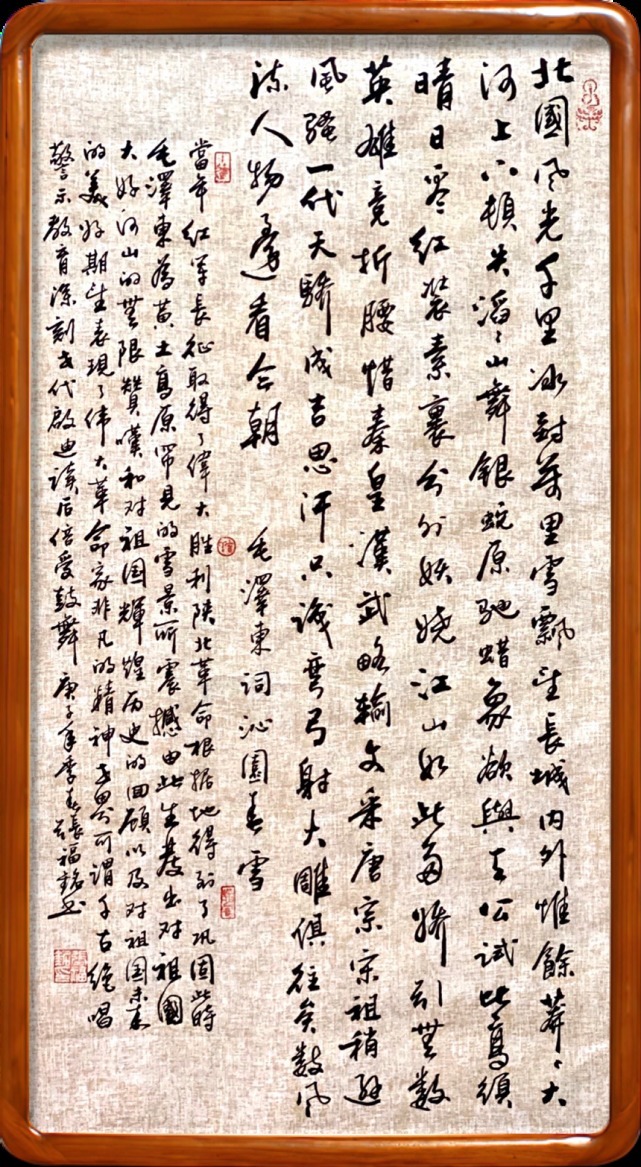 北國风光千里冰封萬里雪飄望長城内外惟餘莽ゝ大
河上下頓失滔ゝ山舞銀蛇原馳蜡象欲與天公試比高須
晴日看红裝素裹分外妖嬈江山如此多嬌引無數
英雄竟折腰惜秦皇漢武略輸文采唐宗宋祖稍遜
風騷一代天驕成吉思汗只識彎弓射大雕俱往矣數风
流人物還看今朝 毛澤東詞沁園春雪
當年红军長征取得了偉大胜利陕北革命根据地得到了巩固此時
毛澤東為黄土高原罕見的雪景所震撼由此生發出对祖國
大好河山的無限贊嘆和对祖国輝煌历史的回顧以及对祖国未来
的美好期望表現了偉大革命家非凡的精神世界可謂千古绝唱
警示教育深刻世代啟迪读后倍受鼓舞 庚子年季春張福銘书